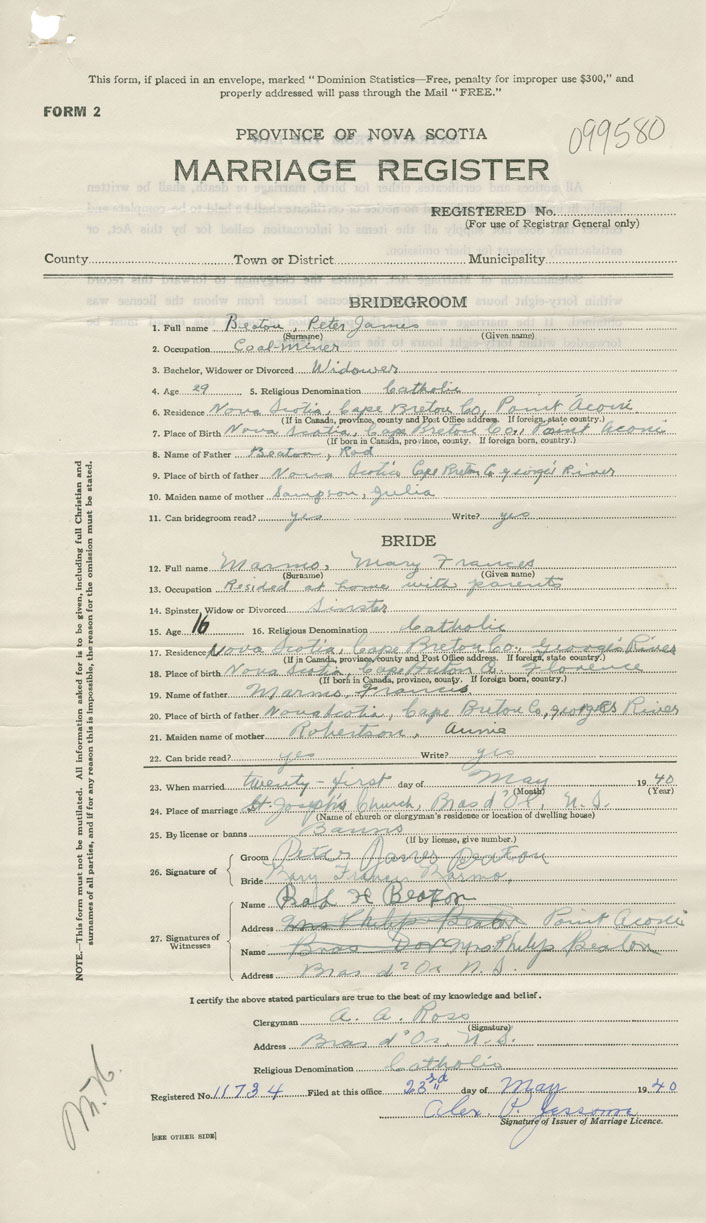 This form, if placed in an envelope, marked "Dominion Statistics—Free, penalty for improper use $300," and
properly addressed will pass through the Mail "FREE."
FORM 2
PROVINCE OF NOVA SCOTIA
099580
MARRIAGE REGISTER
REGISTERED No.
(For use of Registrar General only)
County Town or District Municipality
BRIDEGROOM
1. Full name Beaton, Peter James
(Surname) (Given name)
2. Occupation Coal-Miner
3. Bachelor, Widower or Divorced Widower
4. Age 29 5. Religious Denomination Catholic
6. Residence Nova Scotia, Cape Breton Co, Point Aconi
(If in Canada, province, county and Post Office address. If foreign, state country.)
7. Place of Birth Nova Scotia, Cape Breton Co., Point Aconi
(If born in Canada, province, county. If foreign born, country.)
8. Name of Father Beaton, Rod
9. Place of birth of father Nova Scotia Cape Breton Co George's River
10. Maiden name of mother Sampson, Julia
11. Can bridegroom read? yes Write? yes
BRIDE
12. Full name Marmo, Mary Frances
(Surname) (Given name)
13. Occupation Resided at home with parents
14. Spinster, Widow or Divorced Sinster
15. Age 16 16. Religious Denomination Catholic
17. Residence Nova Scotia, Cape Breton Co. George's River
(If in Canada, province, county and Post Office address. If foreign, state country.)
18. Place of birth Nova Scotia, Cape Breton Co. Florence
(If born in Canada, province, county. If foreign born, country.)
19. Name of father Marmo, Francis
20. Place of birth of father Nova Scotia, Cape Breton Co, George's River
21. Maiden name of mother Robertson, Annie
22. Can bride read? yes Write? yes
23. When married twenty-first day of May 1940
(Month) (Year)
24. Place of marriage St. Joseph's Church, Bras d'Or, N.S.
(Name of church or clergyman's residence or location of dwelling house)
25. By license or banns Banns
(If by license, give number.)
26. Signature of
Groom Peter James Beaton
Bride Mary Frances Marmo,
27. Signatures of Witnesses
Name H Beaton
Address Mrs Philip Beaton Point Aconi
Name Bras Dor Mrs Philip Beaton
Address Bras d'Or N.S.
I certify the above stated particulars are true to the best of my knowledge and belief.
Clergyman A. A. Ross
(Signature)
Address Bras d'Or, N.S.
Religious Denomination Catholic
Registered No. 11734 Filed at this office 23rd day of May 1940
Alex P. Jessome
Signature of Issuer of Marriage Licence.
[SEE OTHER SIDE]
NOTE.—This form must not be mutilated. All information asked for is to be given, including full Christian and
surnames of all parties, and if for any reason this is impossible, the reason for the omission must be stated.